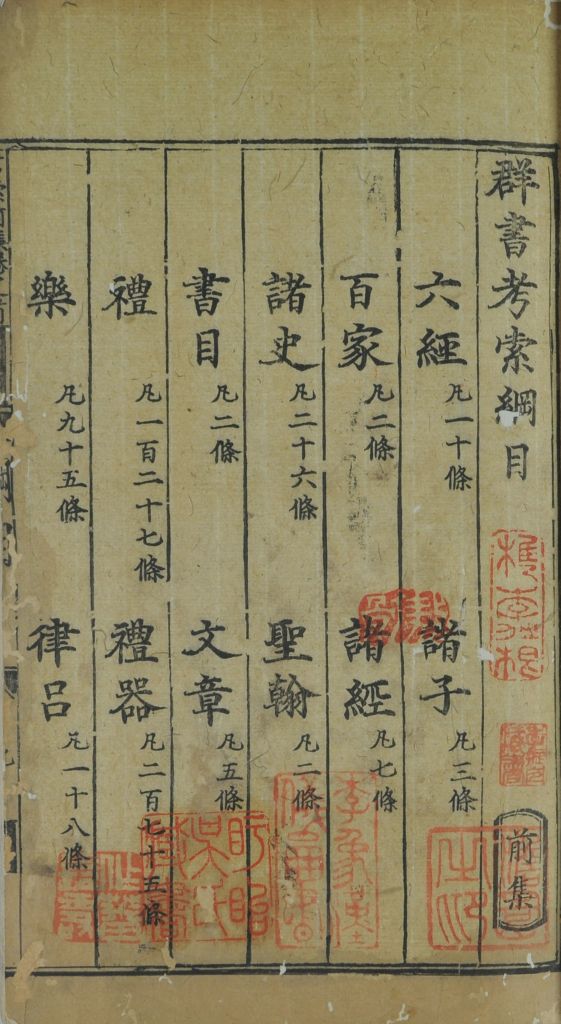 群書考索綱目
前集
六經 凡一十條 諸子 凡三條
百家 凡二條 諸經 凡七條
諸史 凡二十六條 聖翰 凡二條
書目 凡二條 文章 凡五條
禮 凡一百二十七條 禮器 凡二百七十五條
樂 凡九十五條 律呂 凡一十八條